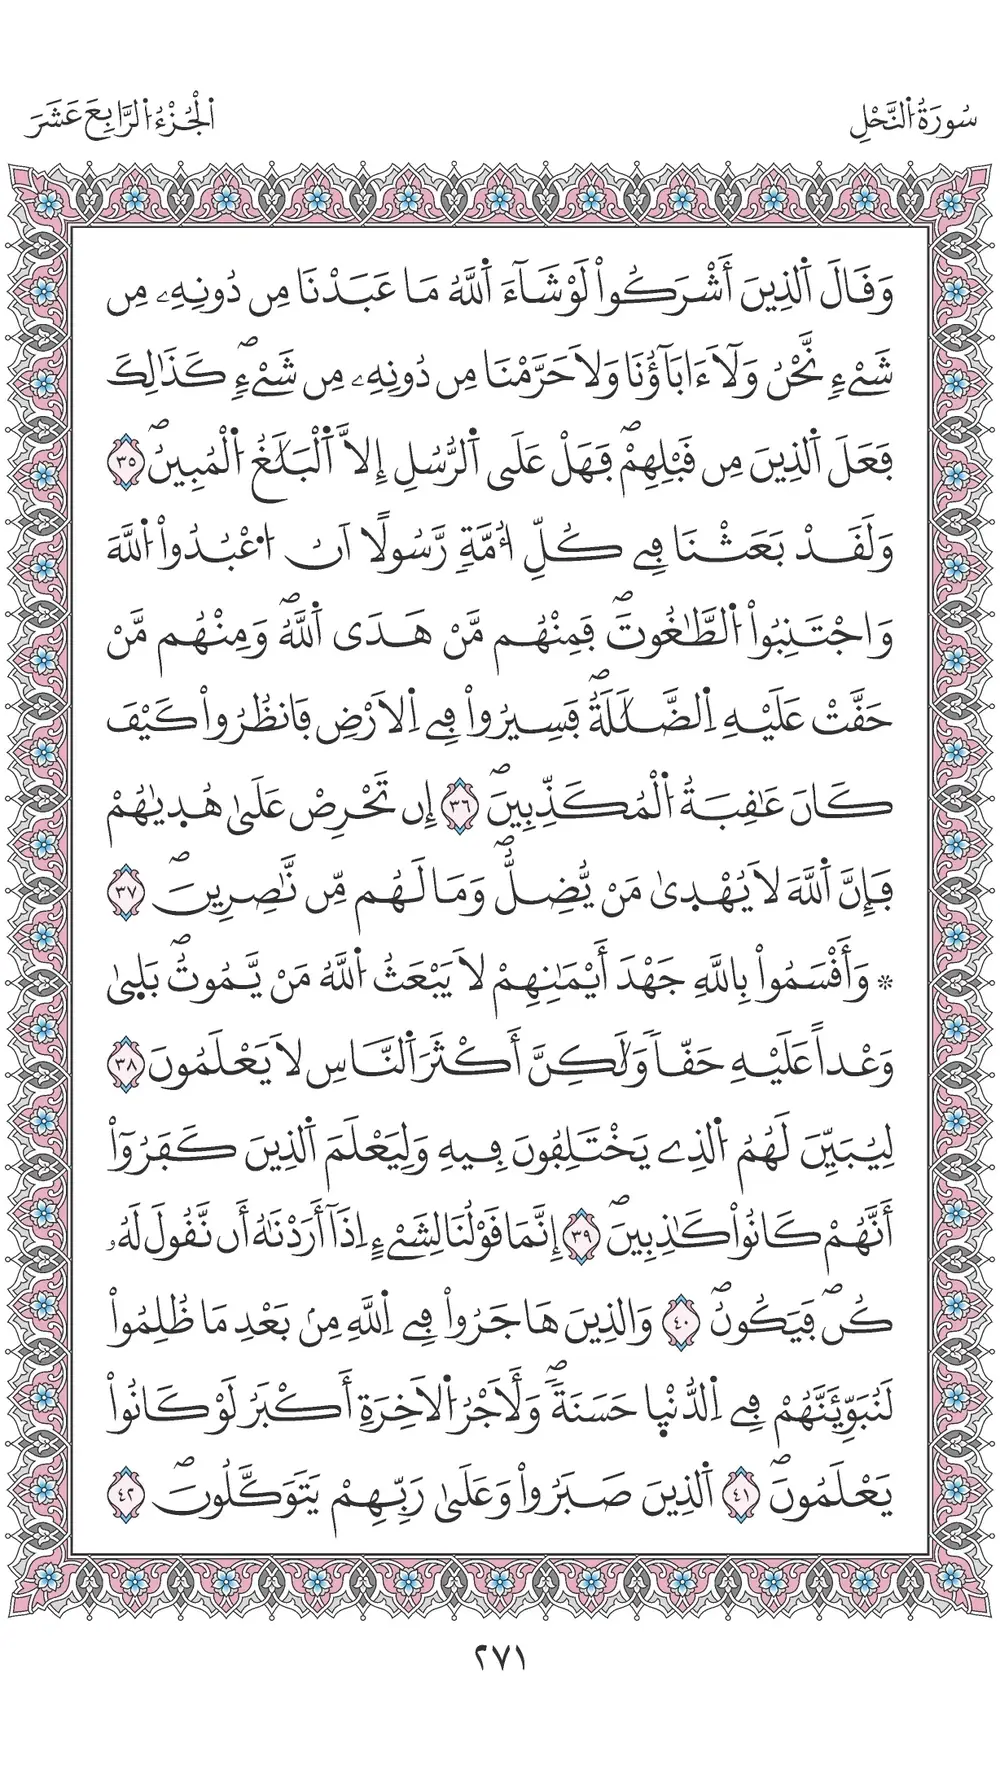 سُورَةُ النَّحْلِ
الْجُزْءُ الرَّابِعَ عَشَرَ
وَقَالَ اَ۬لذِينَ أَشْرَكُواْ لَوْ شَآءَ اَ۬للَّهُ مَا عَبَدْنَا مِن دُونِهِۦ مِن
شَےْءٖ نَّحْنُ وَلَآ ءَابَآؤُنَا وَلَا حَرَّمْنَا مِن دُونِهِۦ مِن شَےْءٖۖ كَذَٰلِكَ
فَعَلَ اَ۬لذِينَ مِن قَبْلِهِمْۖ فَهَلْ عَلَى اَ۬لرُّسُلِ إِلَّا اَ۬لْبَلَٰغُ اُ۬لْمُبِينُۖ ٣٥
وَلَقَدْ بَعَثْنَا فِے كُلِّ أُمَّةٖ رَّسُولًا اَنُ اُ۟عْبُدُواْ اُ۬للَّهَ
وَاجْتَنِبُواْ اُ۬لطَّٰغُوتَۖ فَمِنْهُم مَّنْ هَدَى اَ۬للَّهُۖ وَمِنْهُم مَّنْ
حَقَّتْ عَلَيْهِ اِ۬لضَّلَٰلَةُۖ فَسِيرُواْ فِے اِ۬لَارْضِ فَانظُرُواْ كَيْفَ
كَانَ عَٰقِبَةُ اُ۬لْمُكَذِّبِينَۖ ٣٦ إِن تَحْرِصْ عَلَىٰ هُد۪يٰهُمْ
فَإِنَّ اَ۬للَّهَ لَا يُهْد۪ىٰ مَنْ يُّضِلُّۖ وَمَا لَهُم مِّن نَّٰصِرِينَۖ ٣٧
* وَأَقْسَمُواْ بِاللَّهِ جَهْدَ أَيْمَٰنِهِمْ لَا يَبْعَثُ اُ۬للَّهُ مَنْ يَّمُوتُۖ بَل۪ىٰ
وَعْداً عَلَيْهِ حَقّاٗ وَلَٰكِنَّ أَكْثَرَ اَ۬لنَّاسِ لَا يَعْلَمُونَ ٣٨
لِيُبَيِّنَ لَهُمُ اُ۬لذِے يَخْتَلِفُونَ فِيهِ وَلِيَعْلَمَ اَ۬لذِينَ كَفَرُوٓاْ
أَنَّهُمْ كَانُواْ كَٰذِبِينَۖ ٣٩ إِنَّمَا قَوْلُنَا لِشَےْءٍ اِذَآ أَرَدْنَٰهُ أَن نَّقُولَ لَهُۥ
كُنۖ فَيَكُونُۖ ٤٠ وَالذِينَ هَاجَرُواْ فِے اِ۬للَّهِ مِنۢ بَعْدِ مَا ظُلِمُواْ
لَنُبَوِّئَنَّهُمْ فِے اِ۬لدُّنْي۪ا حَسَنَةٗۖ وَلَأَجْرُ اُ۬لَاخِرَةِ أَكْبَرُ لَوْ كَانُواْ
يَعْلَمُونَۖ ٤١ اَ۬لذِينَ صَبَرُواْ وَعَلَىٰ رَبِّهِمْ يَتَوَكَّلُونَۖ ٤٢
٢٧١